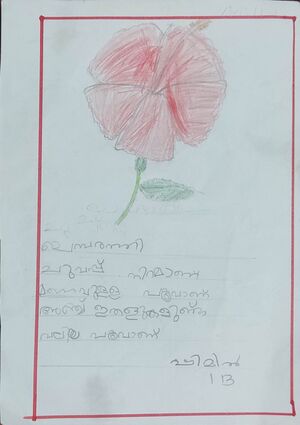 ചെമ്പരത്തി
ചുവപ്പ് നിറമാണ്
മണമുള്ള പൂവാണ്
അഞ്ച് ഇതളുകളുണ്ട്
വലിയ പൂവാണ്
ഷിമിൽ
1 B